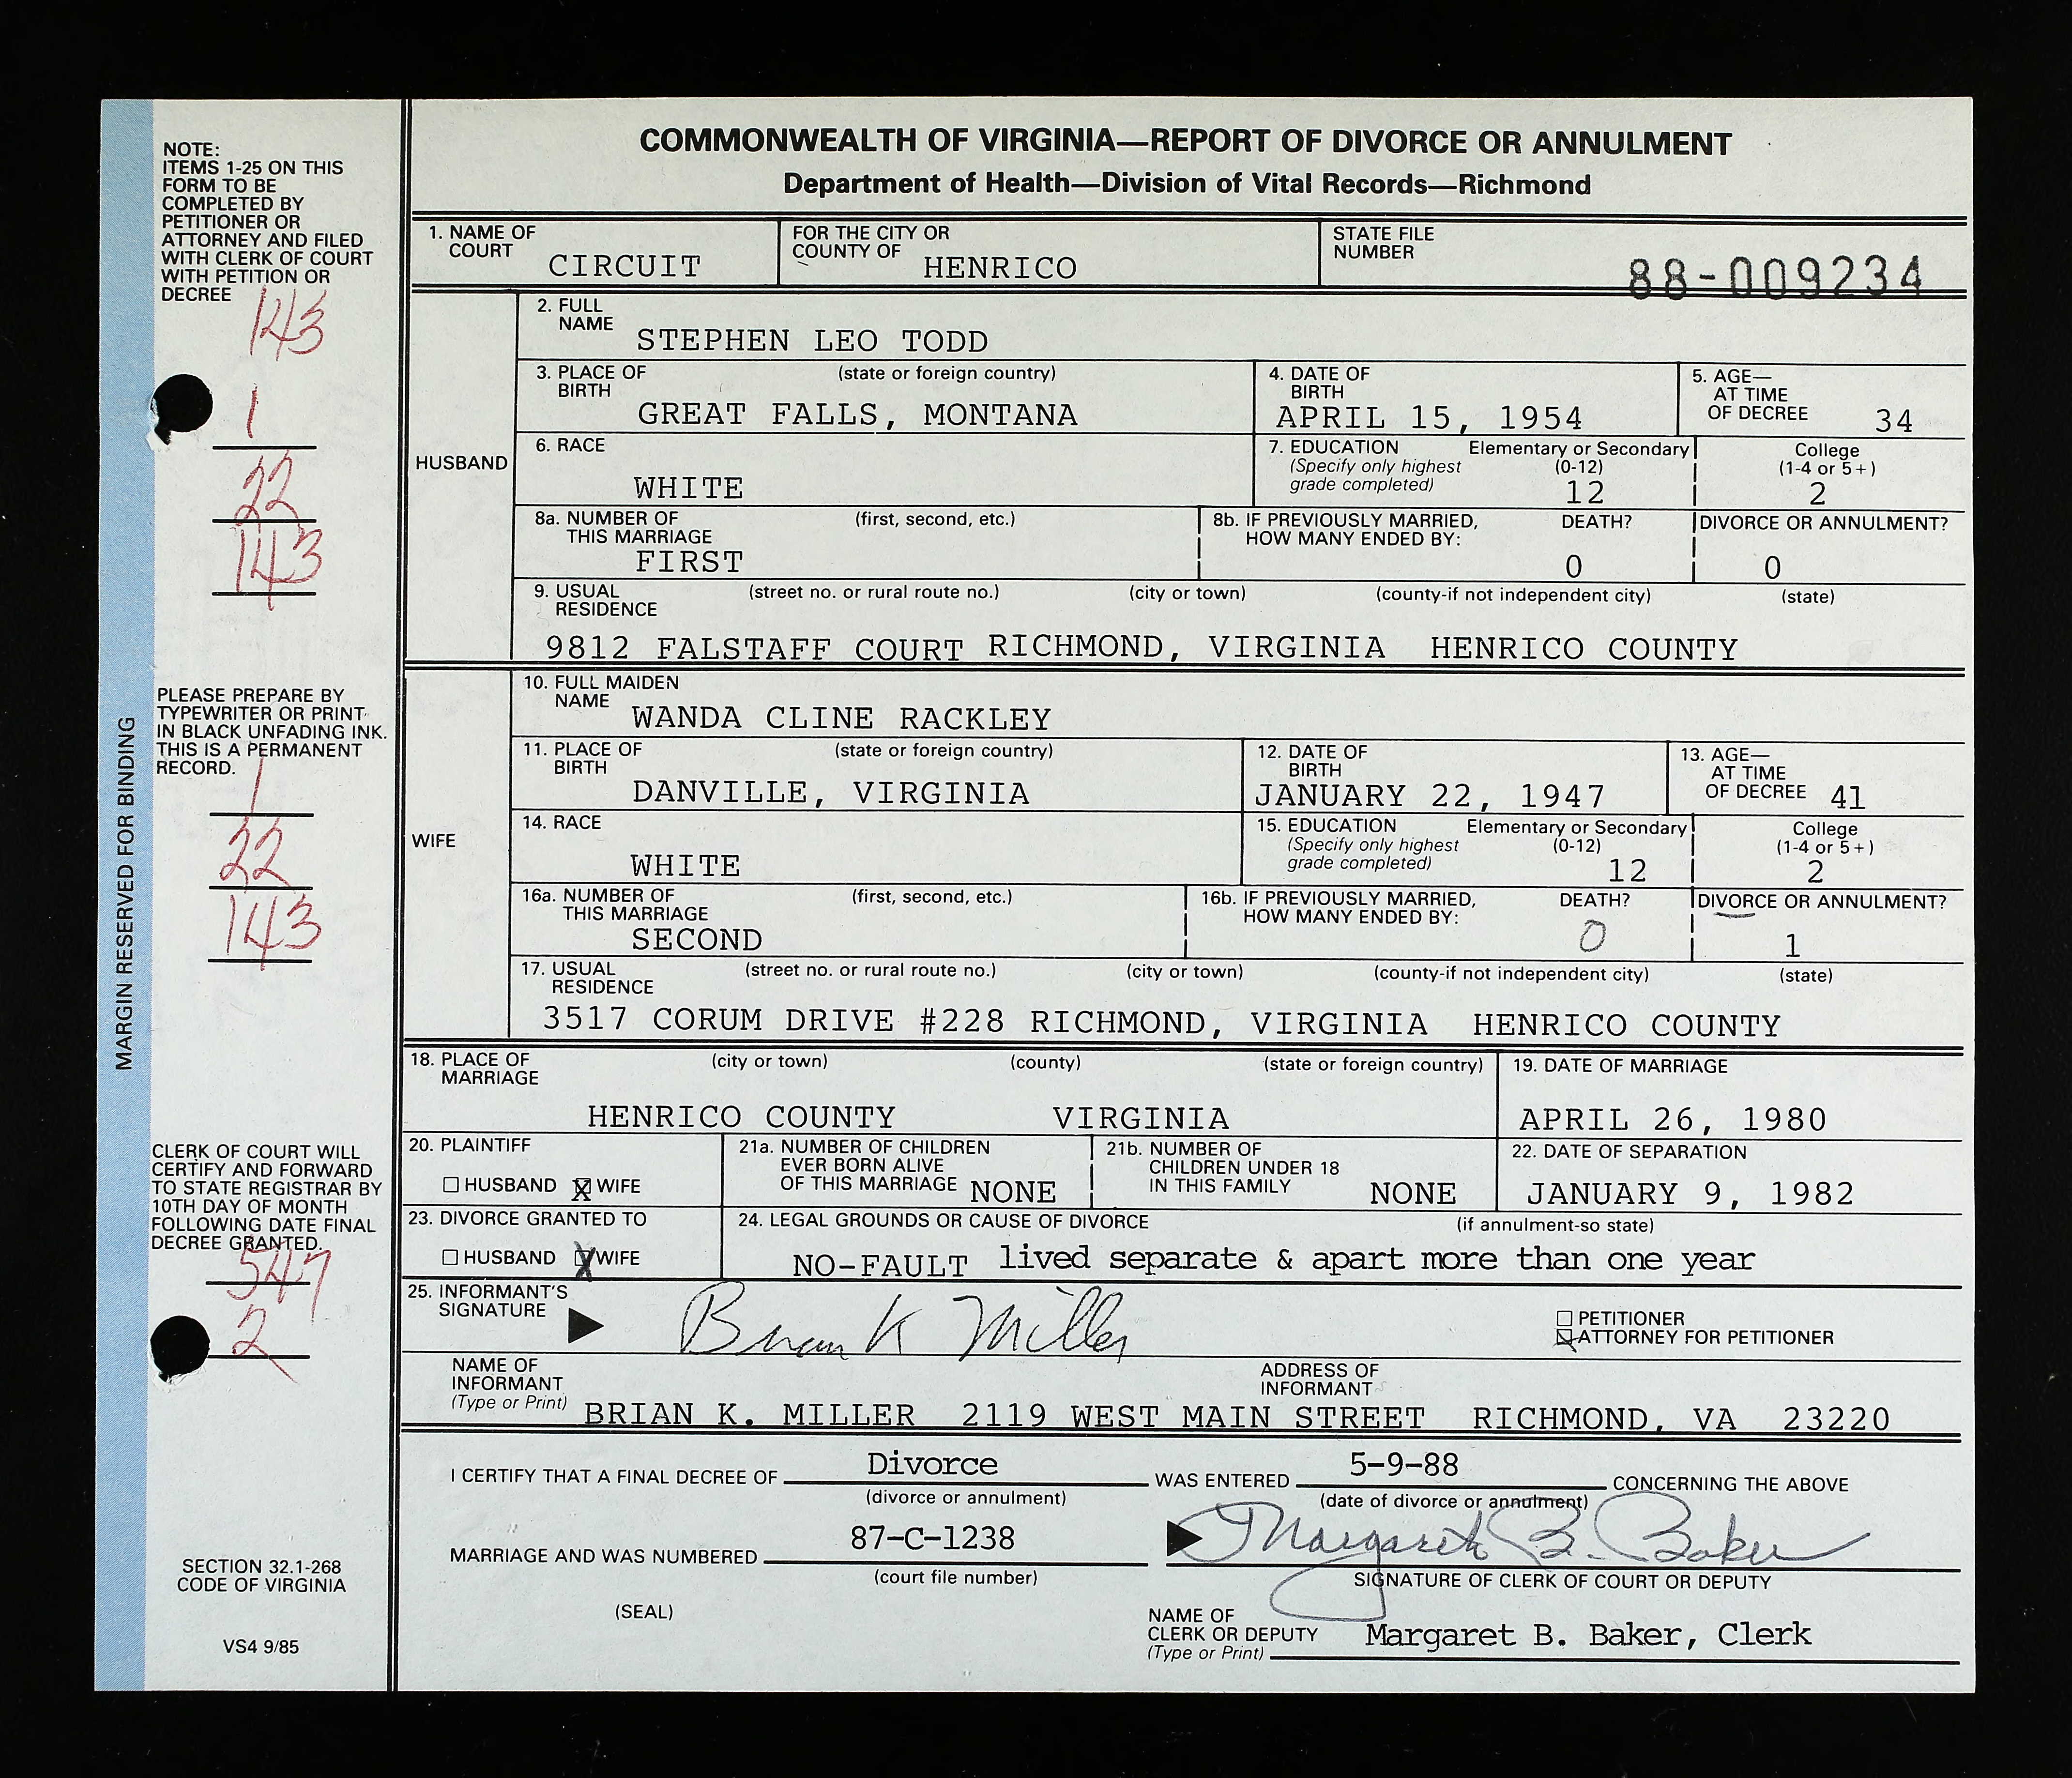 COMMONWEALTH OF VIRGINIA—REPORT OF DIVORCE OR ANNULMENT
Department of Health—Division of Vital Records—Richmond
NOTE:
ITEMS 1-25 ON THIS
FORM TO BE
COMPLETED BY
PETITIONER OR
ATTORNEY AND FILED
WITH CLERK OF COURT
WITH PETITION OR
DECREE
143
1
22
143
PLEASE PREPARE BY
TYPEWRITER OR PRINT
IN BLACK UNFADING INK.
THIS IS A PERMANENT
RECORD.
1
22
143
CLERK OF COURT WILL
CERTIFY AND FORWARD
TO STATE REGISTRAR BY
10TH DAY OF MONTH
FOLLOWING DATE FINAL
DECREE GRANTED.
547
2
SECTION 32.1-268
CODE OF VIRGINIA
VS4 9/85
MARGIN RESERVED FOR BINDING
1. NAME OF COURT CIRCUIT
FOR THE CITY OR COUNTY OF HENRICO
STATE FILE NUMBER 88-009234
HUSBAND
2. FULL NAME STEPHEN LEO TODD
3. PLACE OF BIRTH (state or foreign country) GREAT FALLS, MONTANA
4. DATE OF BIRTH APRIL 15, 1954
5. AGE— AT TIME OF DECREE 34
6. RACE WHITE
7. EDUCATION (Specify only highest grade completed) Elementary or Secondary (0-12) 12 College (1-4 or 5+) 2
8a. NUMBER OF THIS MARRIAGE (first, second, etc.) FIRST
8b. IF PREVIOUSLY MARRIED, HOW MANY ENDED BY: DEATH? 0 DIVORCE OR ANNULMENT? 0
9. USUAL RESIDENCE (street no. or rural route no.) (city or town) (county-if not independent city) (state)
9812 FALSTAFF COURT RICHMOND, VIRGINIA HENRICO COUNTY
WIFE
10. FULL MAIDEN NAME WANDA CLINE RACKLEY
11. PLACE OF BIRTH (state or foreign country) DANVILLE, VIRGINIA
12. DATE OF BIRTH JANUARY 22, 1947
13. AGE— AT TIME OF DECREE 41
14. RACE WHITE
15. EDUCATION (Specify only highest grade completed) Elementary or Secondary (0-12) 12 College (1-4 or 5+) 2
16a. NUMBER OF THIS MARRIAGE (first, second, etc.) SECOND
16b. IF PREVIOUSLY MARRIED, HOW MANY ENDED BY: DEATH? 0 DIVORCE OR ANNULMENT? 1
17. USUAL RESIDENCE (street no. or rural route no.) (city or town) (county-if not independent city) (state)
3517 CORUM DRIVE #228 RICHMOND, VIRGINIA HENRICO COUNTY
18. PLACE OF MARRIAGE (city or town) (county) (state or foreign country)
HENRICO COUNTY VIRGINIA
19. DATE OF MARRIAGE
APRIL 26, 1980
20. PLAINTIFF
☐ HUSBAND ☒ WIFE
21a. NUMBER OF CHILDREN EVER BORN ALIVE OF THIS MARRIAGE NONE
21b. NUMBER OF CHILDREN UNDER 18 IN THIS FAMILY NONE
22. DATE OF SEPARATION
JANUARY 9, 1982
23. DIVORCE GRANTED TO
☐ HUSBAND ☒ WIFE
24. LEGAL GROUNDS OR CAUSE OF DIVORCE (if annulment-so state)
NO-FAULT lived separate & apart more than one year
25. INFORMANT'S SIGNATURE Brian K Miller
☐ PETITIONER
☒ ATTORNEY FOR PETITIONER
NAME OF INFORMANT (Type or Print) BRIAN K. MILLER
ADDRESS OF INFORMANT 2119 WEST MAIN STREET RICHMOND, VA 23220
I CERTIFY THAT A FINAL DECREE OF Divorce WAS ENTERED 5-9-88 CONCERNING THE ABOVE
(divorce or annulment) (date of divorce or annulment)
MARRIAGE AND WAS NUMBERED 87-C-1238 Margaret B. Baker
(court file number) SIGNATURE OF CLERK OF COURT OR DEPUTY
(SEAL)
NAME OF CLERK OR DEPUTY (Type or Print) Margaret B. Baker, Clerk